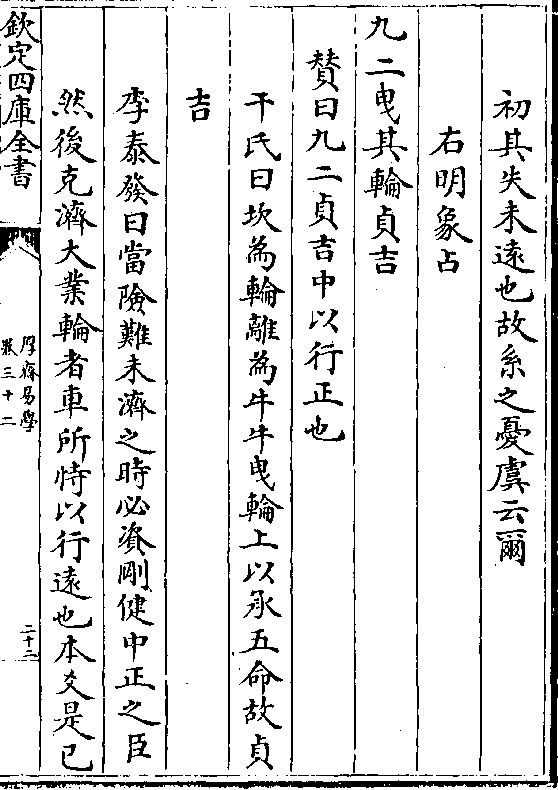 初其失未遠也故系之憂虞云爾
右明象占
九二曳其輪貞吉
賛曰九二貞吉中以行正也
干氏曰坎為輪離為牛牛曳輪上以承五命故貞
吉
李泰發曰當險難未濟之時必資剛健中正之臣
然後克濟大業輪者車所恃以行遠也本爻是已
欽定四庫全書
厚齋易學
卷三十二
二十二